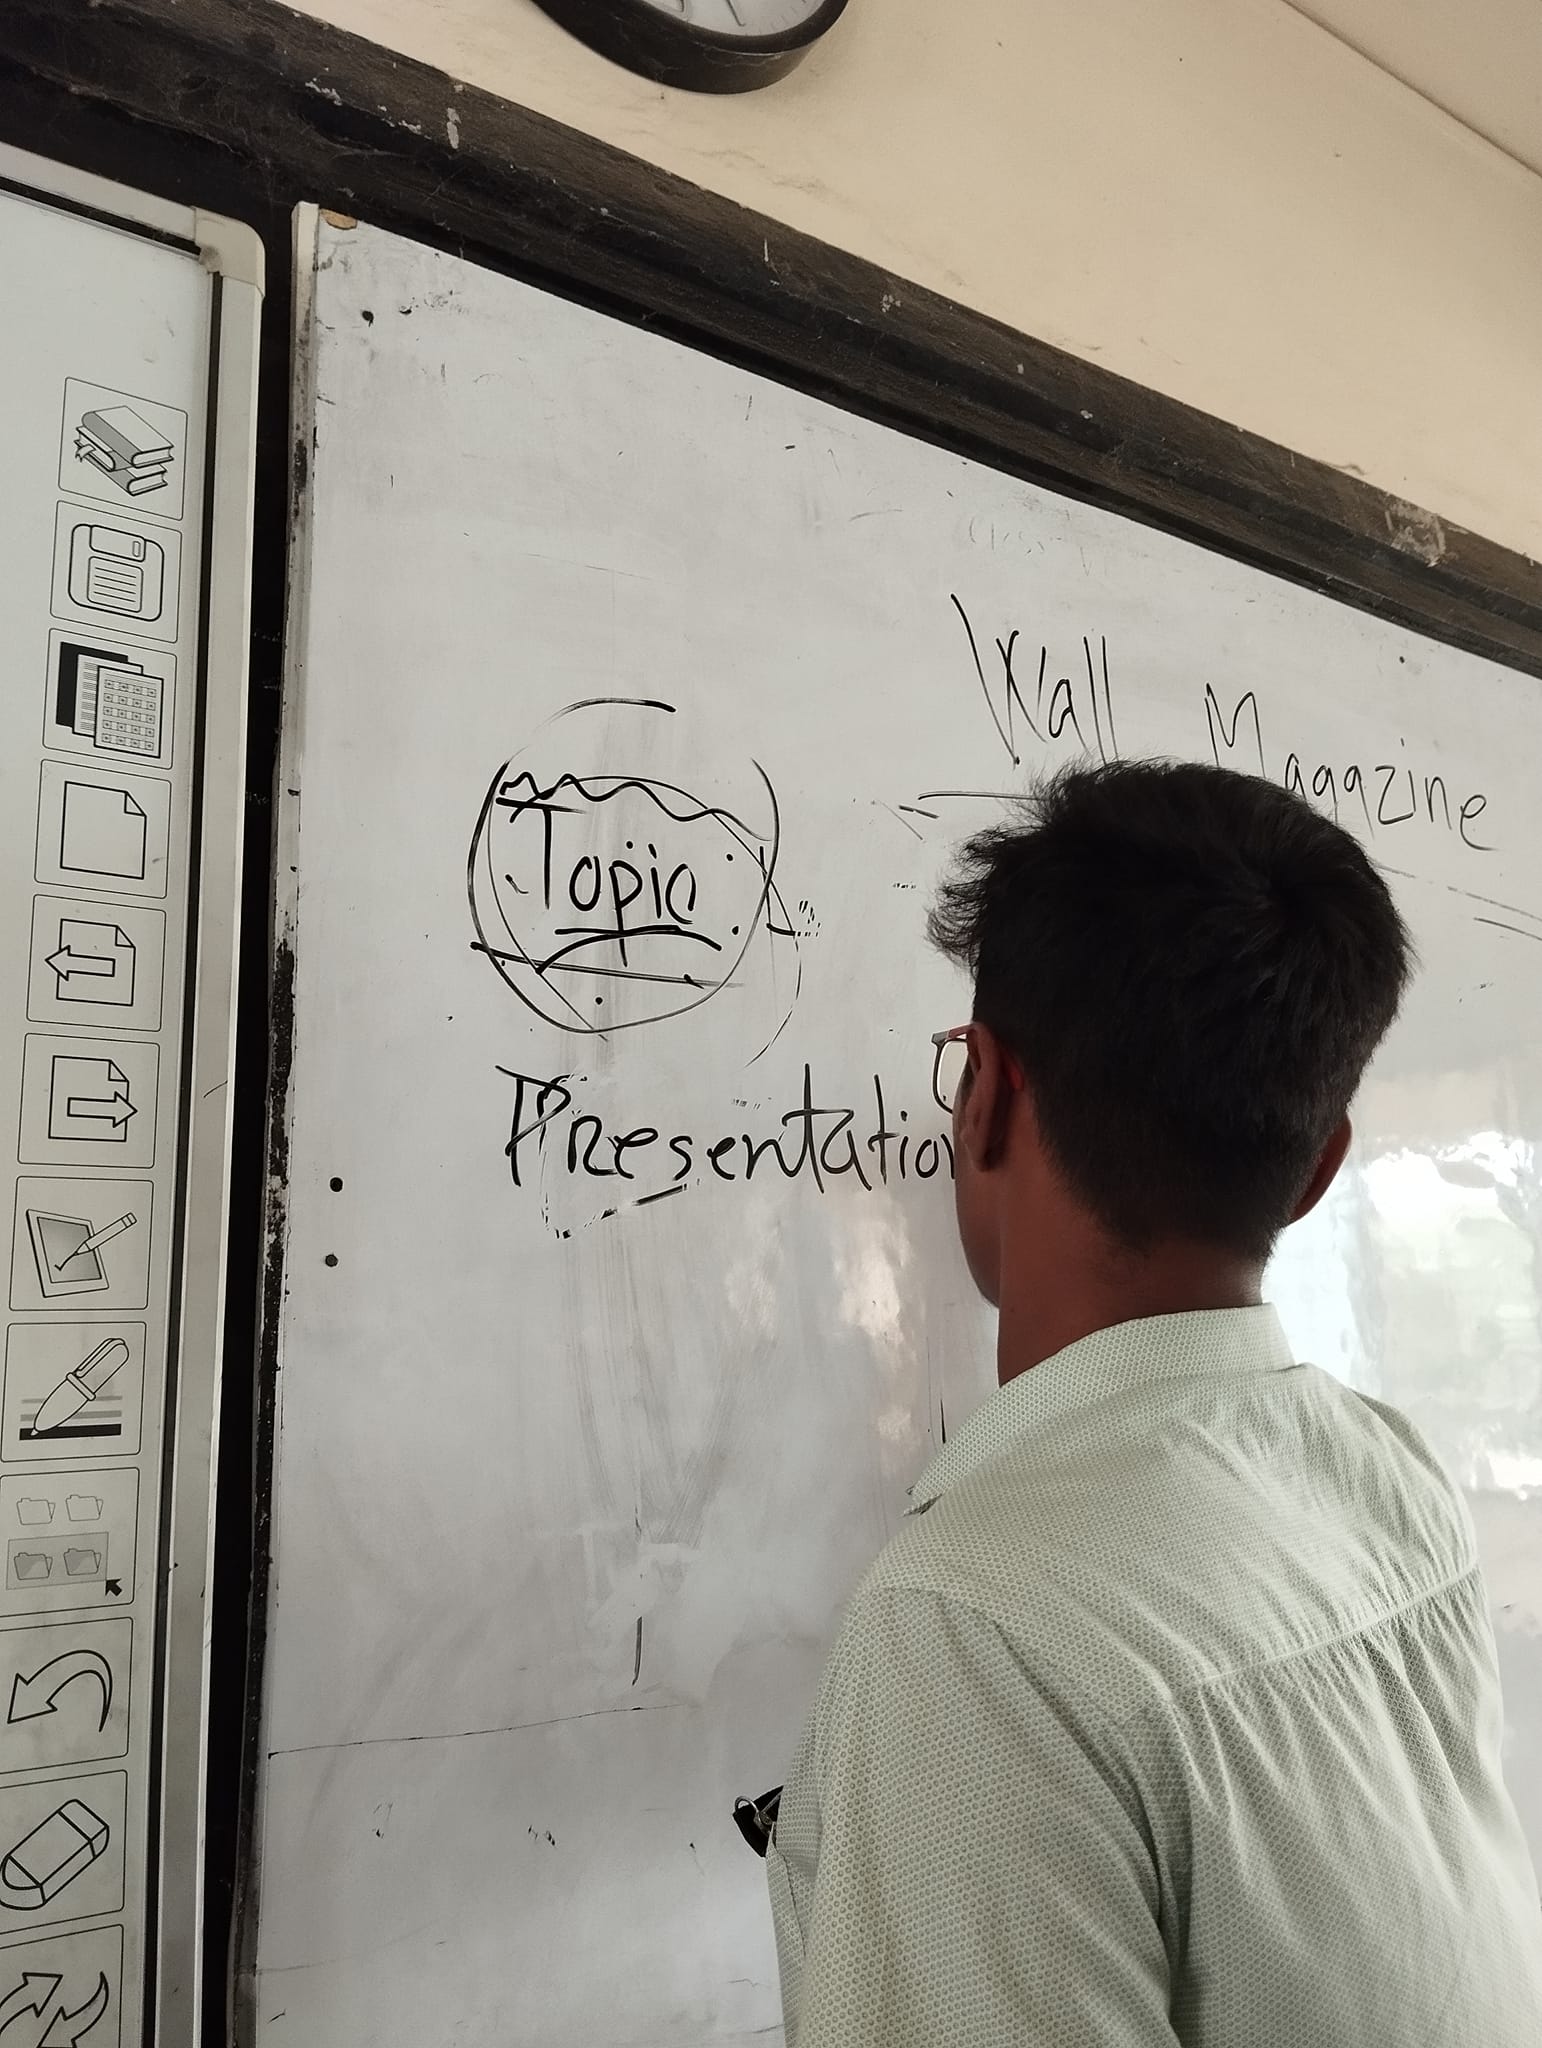 Wall Magazine
Topic
Presentation